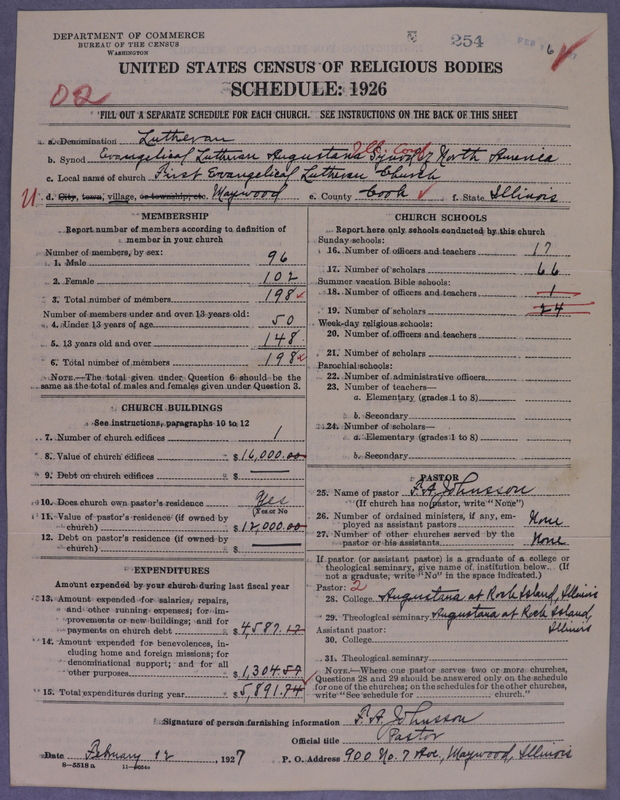 DEPARTMENT OF COMMERCE
BUREAU OF THE CENSUS
WASHINGTON
254
UNITED STATES CENSUS OF RELIGIOUS BODIES
SCHEDULE: 1926
02
FILL OUT A SEPARATE SCHEDULE FOR EACH CHURCH. SEE INSTRUCTIONS ON THE BACK OF THIS SHEET
a. Denomination Lutheran
b. Synod Evangelical Lutheran Augustana Synod of North America
c. Local name of church First Evangelical Lutheran Church
U d. City, town, village, or township, etc. Maywood e. County Cook f. State Illinois
MEMBERSHIP
Report number of members according to definition of member in your church
Number of members, by sex:
1. Male 96
2. Female 102
3. Total number of members 198
Number of members under and over 13 years old:
4. Under 13 years of age 50
5. 13 years old and over 148
6. Total number of members 198
NOTE.—The total given under Question 6 should be the same as the total of males and females given under Question 3.
CHURCH BUILDINGS
See instructions, paragraphs 10 to 12
7. Number of church edifices 1
8. Value of church edifices $16,000.00
9. Debt on church edifices $
10. Does church own pastor's residence Yes
(Yes or No)
11. Value of pastor's residence (if owned by church) $12,000.00
12. Debt on pastor's residence (if owned by church) $
EXPENDITURES
Amount expended by your church during last fiscal year
13. Amount expended for salaries, repairs, and other running expenses; for improvements or new buildings; and for payments on church debt $4,587.17
14. Amount expended for benevolences, including home and foreign missions; for denominational support; and for all other purposes $1,304.57
15. Total expenditures during year $5,891.74
CHURCH SCHOOLS
Report here only schools conducted by this church
Sunday schools:
16. Number of officers and teachers 17
17. Number of scholars 66
Summer vacation Bible schools:
18. Number of officers and teachers 1
19. Number of scholars 24
Week-day religious schools:
20. Number of officers and teachers
21. Number of scholars
Parochial schools:
22. Number of administrative officers
23. Number of teachers—
a. Elementary (grades 1 to 8)
b. Secondary
24. Number of scholars—
a. Elementary (grades 1 to 8)
b. Secondary
PASTOR
25. Name of pastor F. A. Johnsson
(If church has no pastor, write "None")
26. Number of ordained ministers, if any, employed as assistant pastors None
27. Number of other churches served by the pastor or his assistants None
If pastor (or assistant pastor) is a graduate of a college or theological seminary, give name of institution below. (If not a graduate, write "No" in the space indicated.)
Pastor: 2
28. College Augustana at Rock Island, Illinois
29. Theological seminary Augustana at Rock Island, Illinois
Assistant pastor:
30. College
31. Theological seminary
NOTE.—Where one pastor serves two or more churches, Questions 28 and 29 should be answered only on the schedule for one of the churches; on the schedules for the other churches, write "See schedule for church."
Signature of person furnishing information F. A. Johnsson
Official title Pastor
Date February 12, 1927 P. O. Address 900 No. 7 Ave., Maywood, Illinois
8—5518a